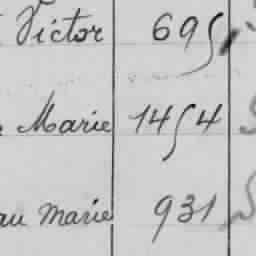 Victor 695
Marie 1454
au Marie 931